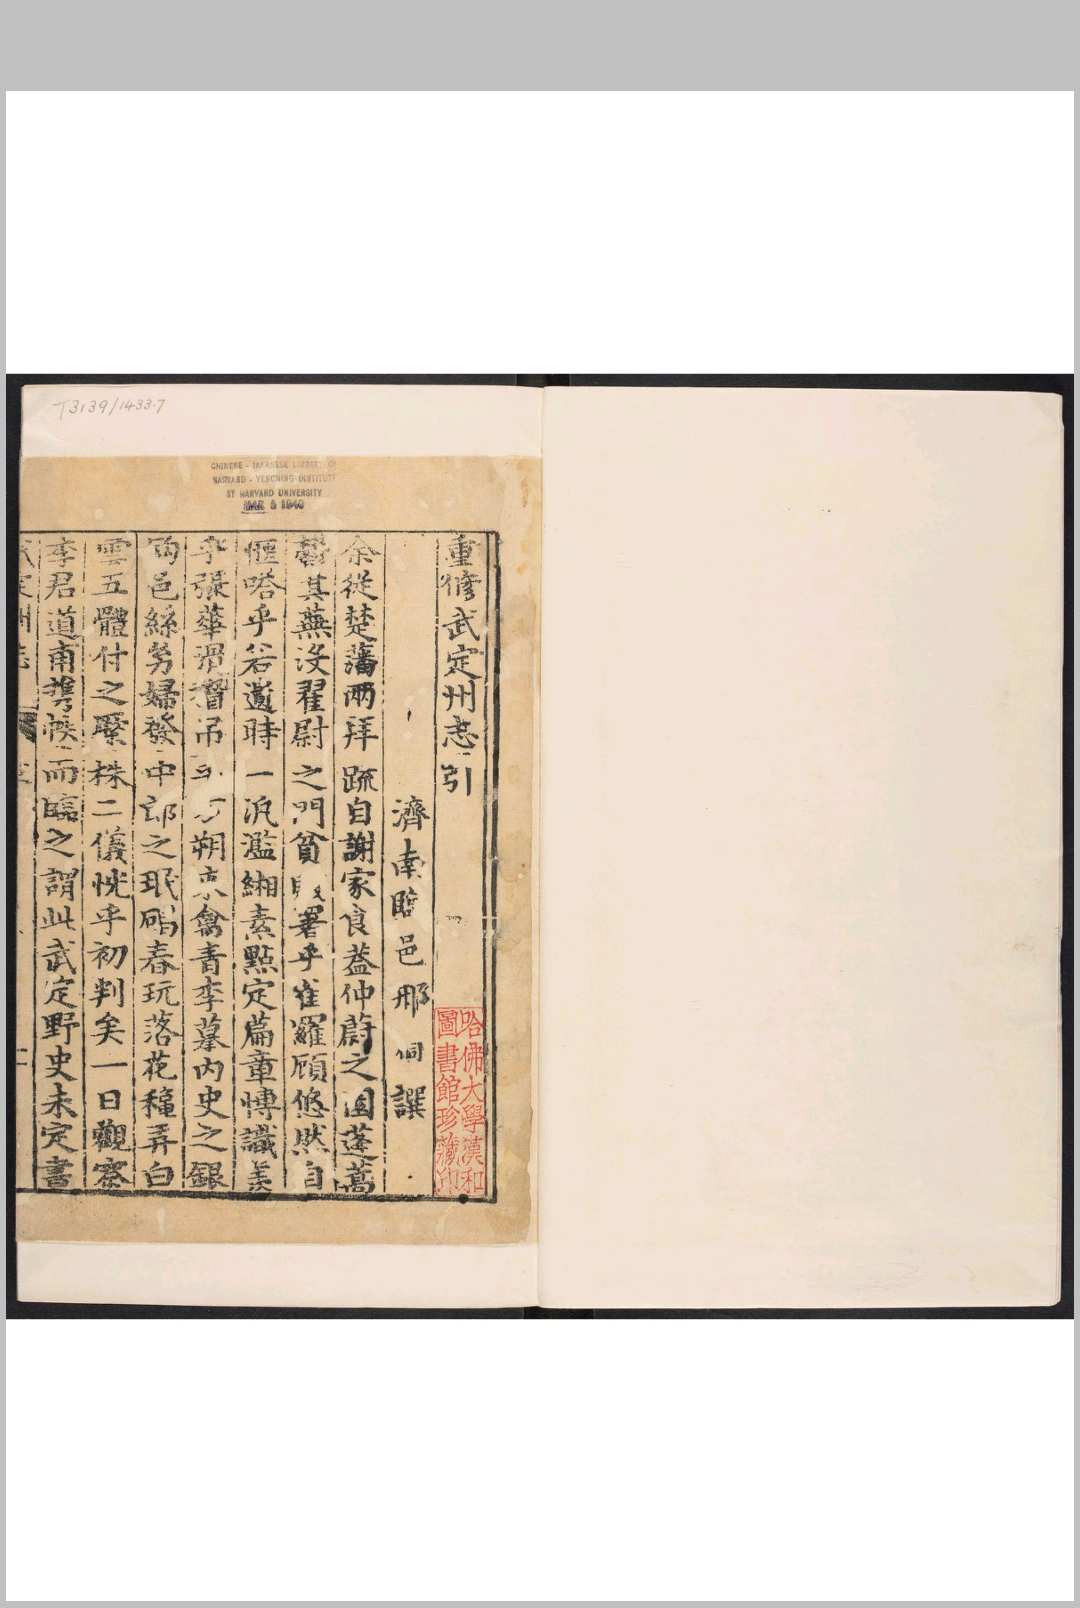 T3139/1433.7
CHINESE - JAPANESE LIBRARY OF
HARVARD - YENCHING INSTITUTE
AT HARVARD UNIVERSITY
MAR 5 1940
重脩武定州志引
濟南臨邑邢侗譔
余從楚藩兩拜疏自謝家食葢仲蔚之園蓬蒿
鬱其蕪沒翟尉之門貧署乎雀羅顧悠然自
愜嗒乎若遺時一汎濫緗素點定篇章慱識羨
乎張華滑稽吊方朔來禽青李摹內史之銀
鈎色絲幼婦發中郎之珉碣春玩落花穐弄白
雲五體付之槃株二儀恍乎初判矣一日觀察
李君道甫攜帙而臨之謂此武定野史未定書
哈佛大學漢和
圖書館珍藏印